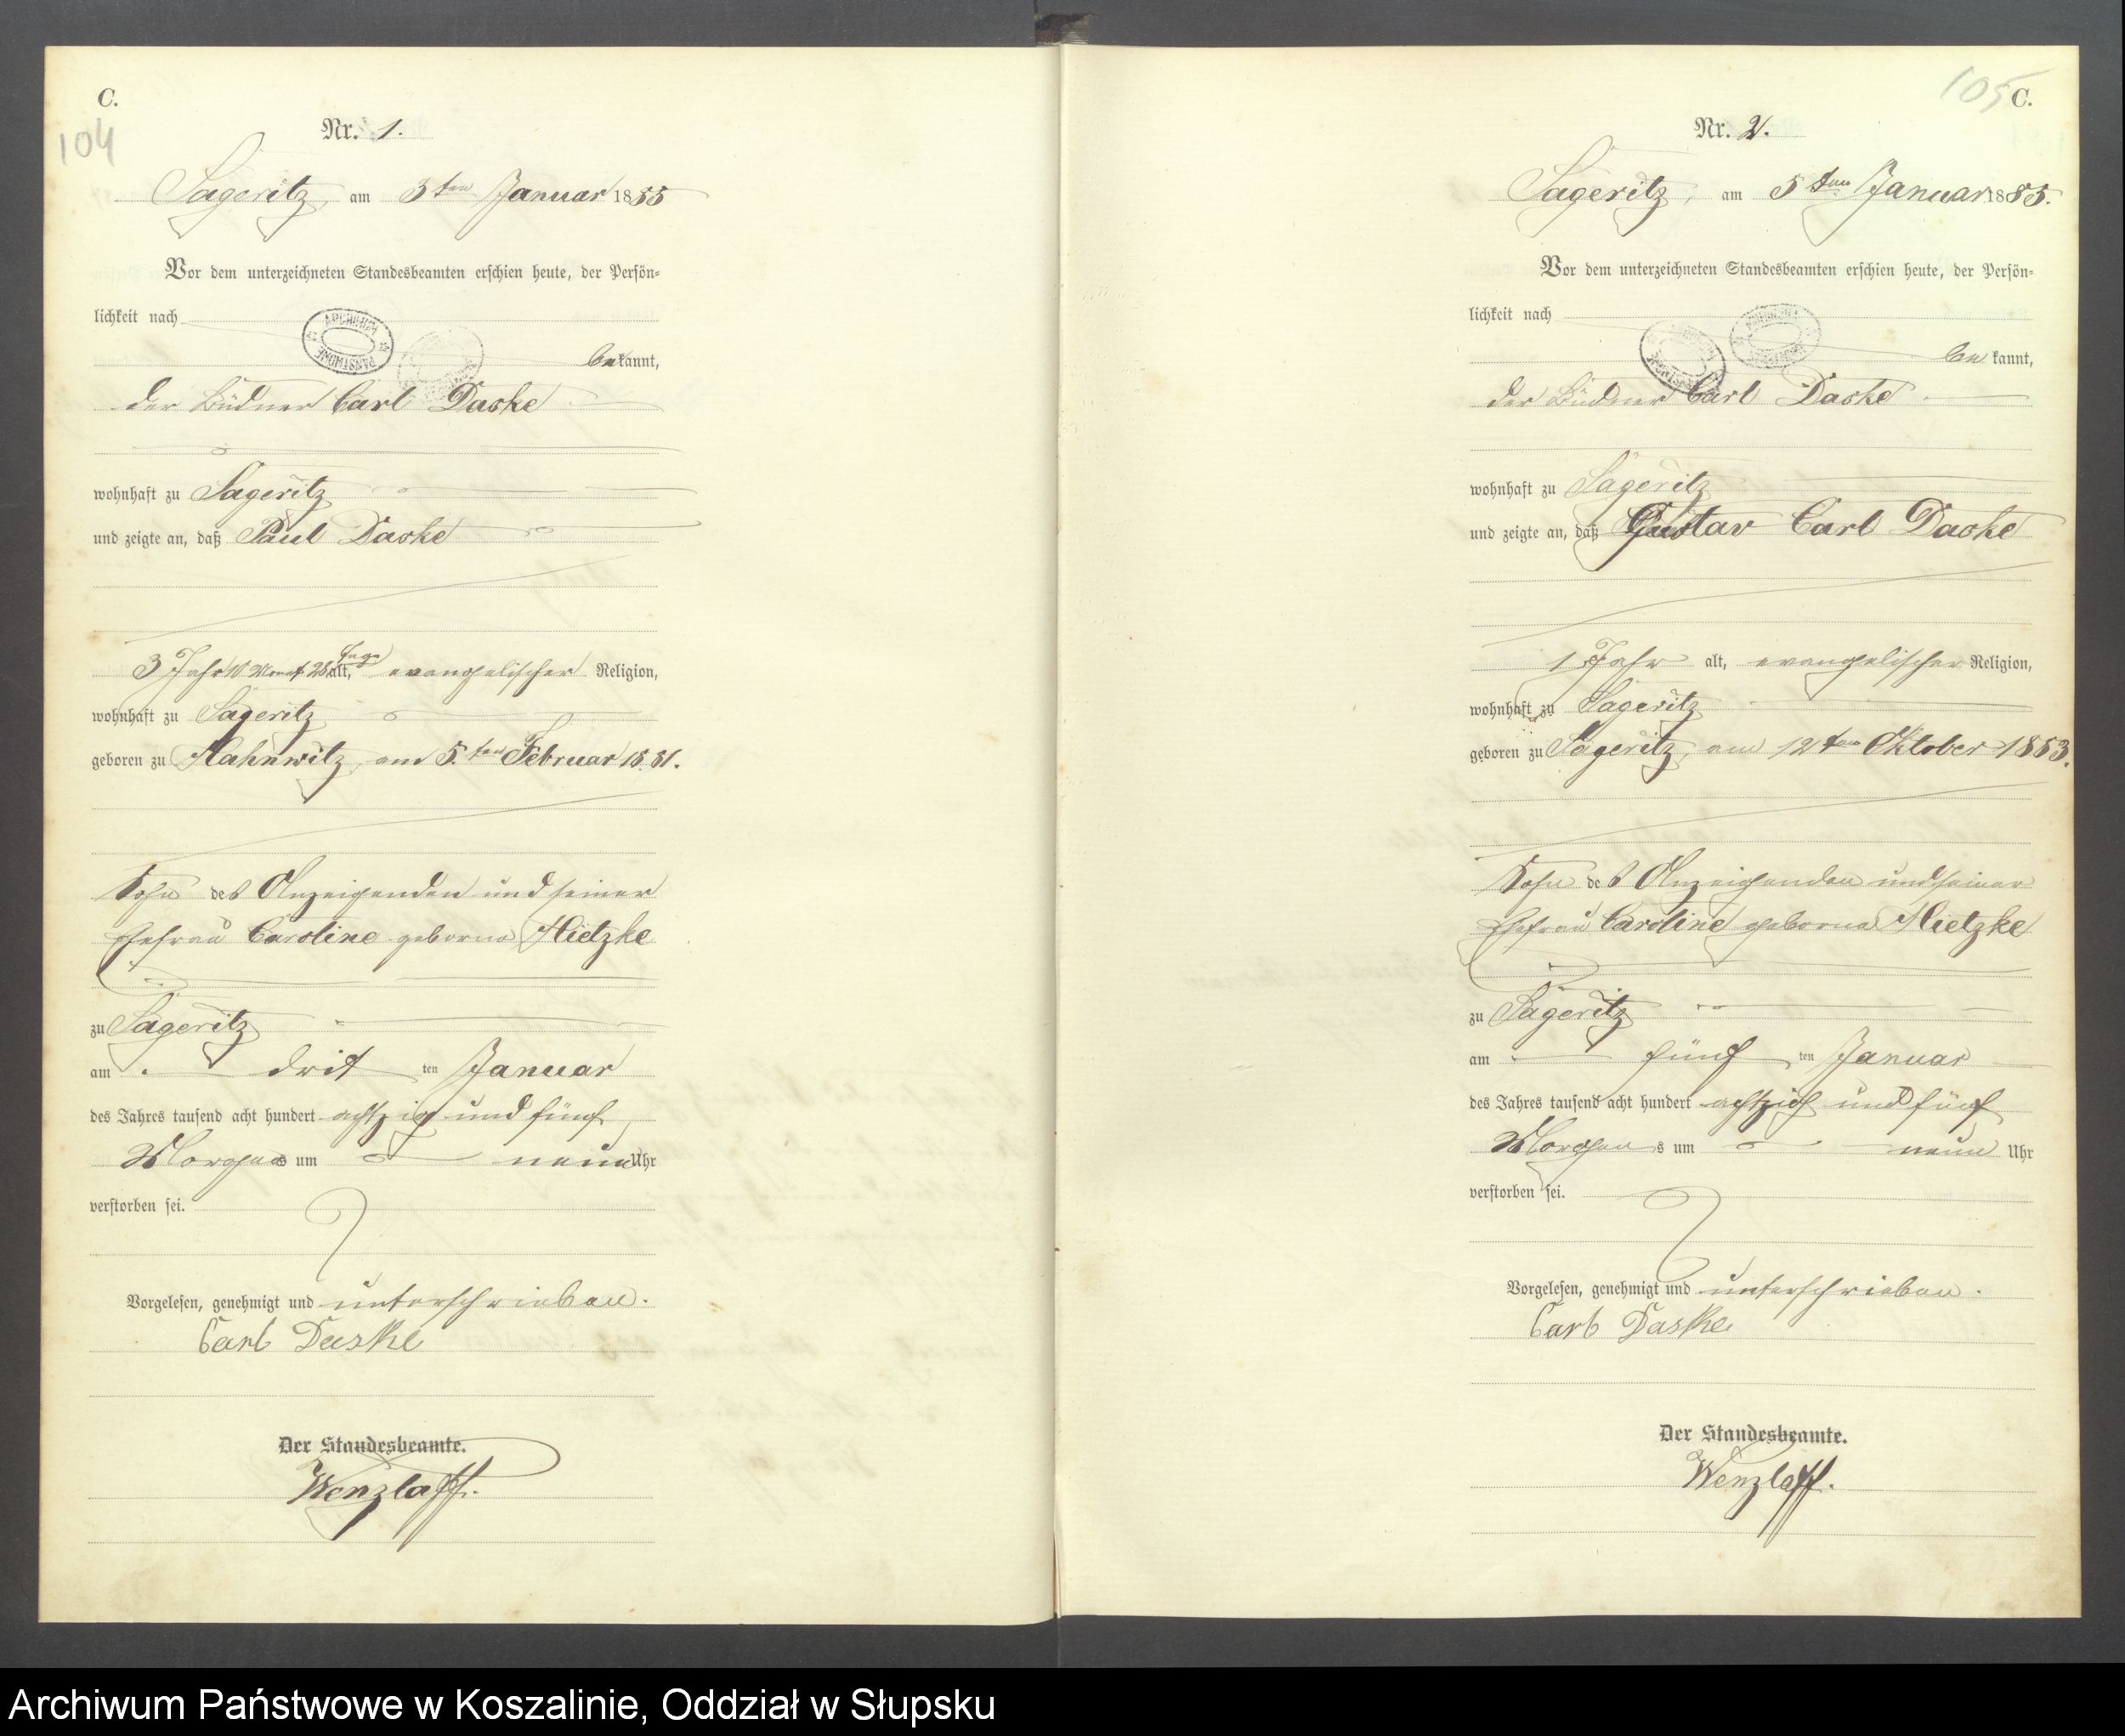 C.
104
Nr. 1.
Sageritz, am 3ten Januar 1885
Vor dem unterzeichneten Standesbeamten erschien heute, der Persön-
lichkeit nach
bekannt,
der Büdner Carl Daske
wohnhaft zu Sageritz
und zeigte an, daß Paul Daske
3 Jahr 10 Monat 28 Tage alt, evangelischer Religion,
wohnhaft zu Sageritz
geboren zu am 5.ten Februar 1881.
Sohn des Anzeigenden und seiner
Ehefrau Caroline geborne Mietzke
zu Sageritz
am drit ten Januar
des Jahres tausend acht hundert achtzig und fünf
Morgens um neun Uhr
verstorben sei.
Vorgelesen, genehmigt und unterschrieben.
Carl Daske
Der Standesbeamte.
Wenzlaff.
105
C.
Nr. 2.
Sageritz, am 5ten Januar 1885.
Vor dem unterzeichneten Standesbeamten erschien heute, der Persön-
lichkeit nach
be kannt,
der Büdner Carl Daske
wohnhaft zu Sageritz
und zeigte an, daß Gustav Carl Daske
1 Jahr alt, evangelischer Religion,
wohnhaft zu Sageritz
geboren zu Sageritz, am 12ten Oktober 1883.
Sohn des Anzeigenden und seiner
Ehefrau Caroline geborne Mietzke
zu Sageritz
am fünf ten Januar
des Jahres tausend acht hundert achtzig und fünf
Morgens um neun Uhr
verstorben sei.
Vorgelesen, genehmigt und unterschrieben.
Carl Daske
Der Standesbeamte.
Wenzlaff.
Archiwum Państwowe w Koszalinie, Oddział w Słupsku